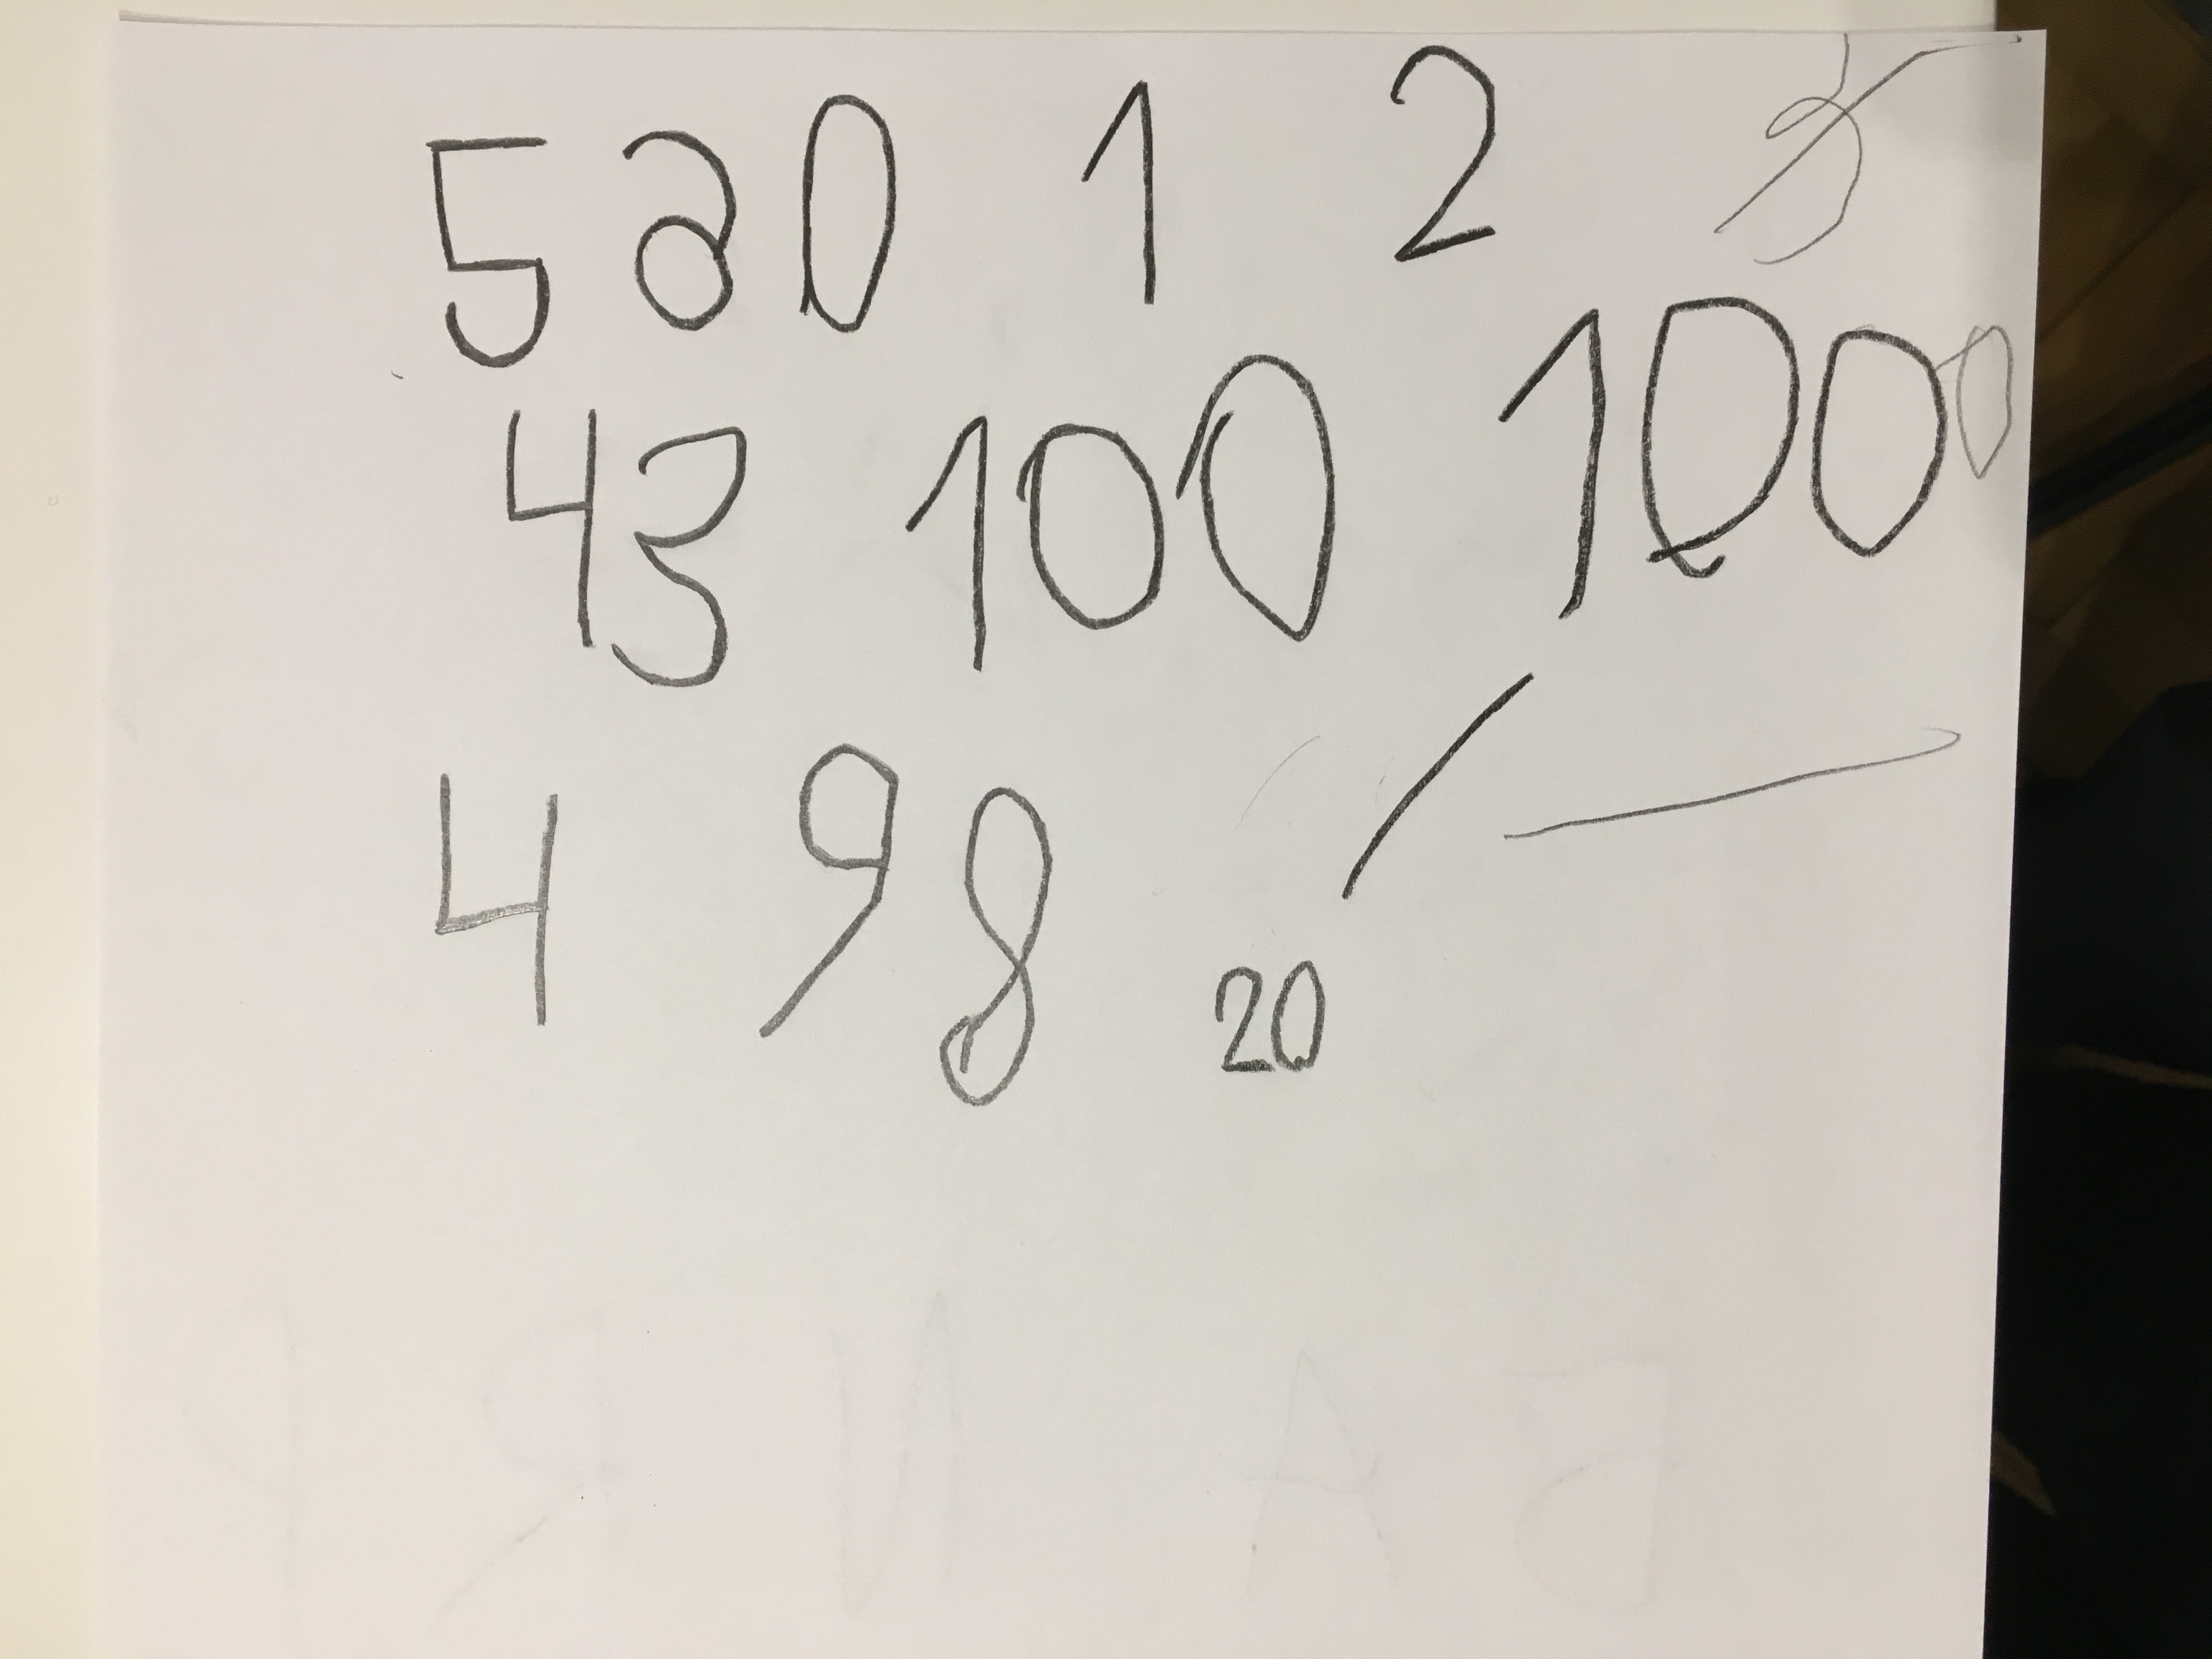 560 1 2
43 100 1000
4 98 20